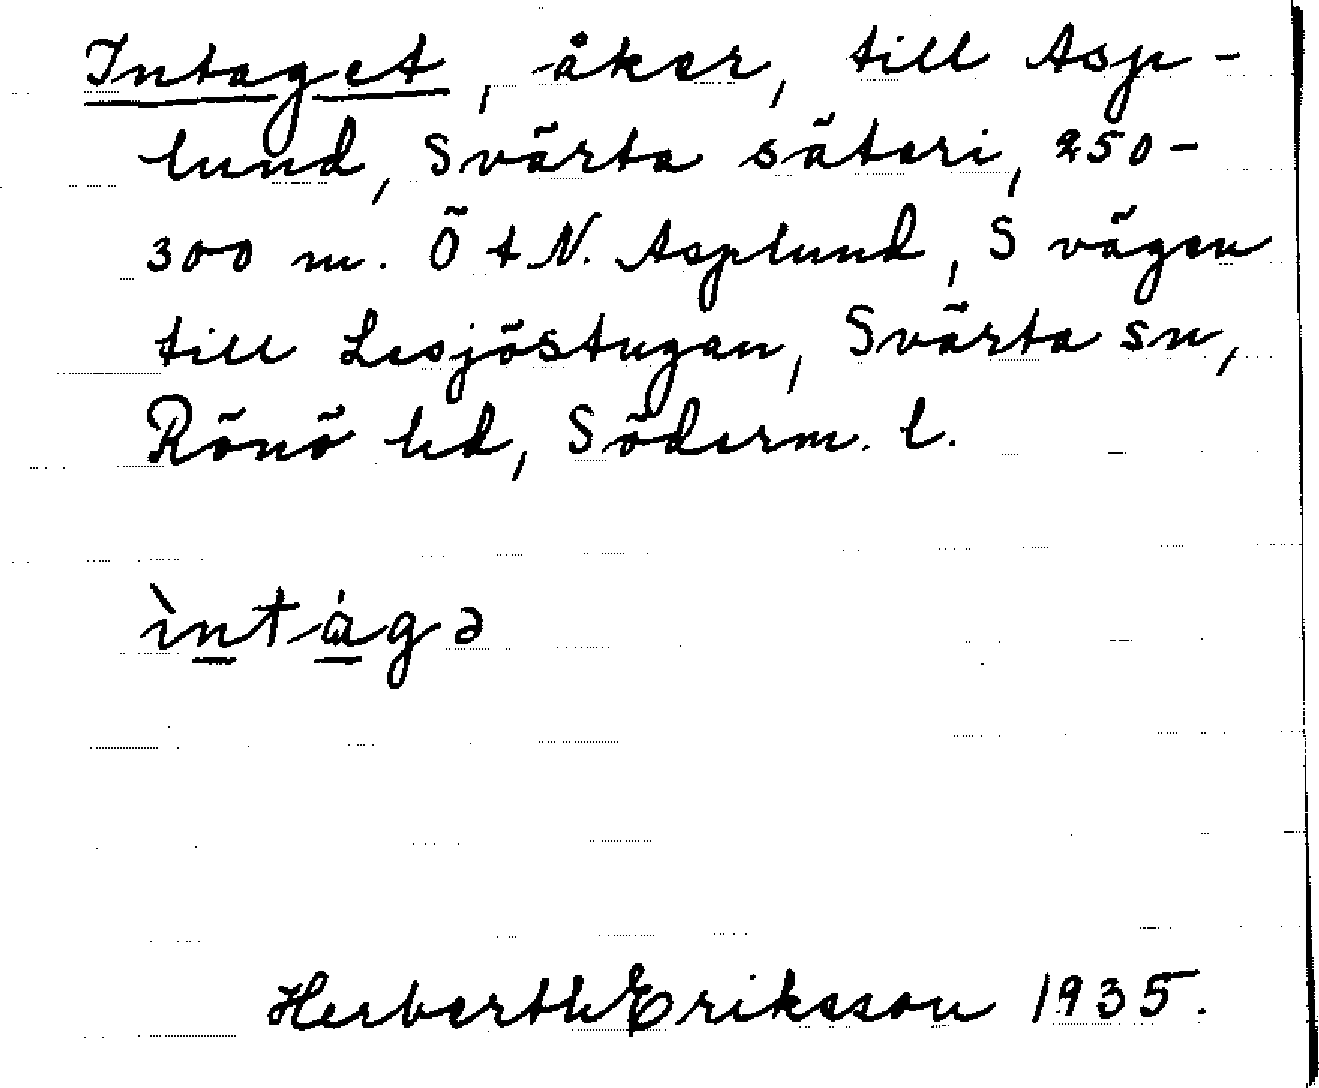 Intaget, åker, till Asp-
lund, Svärta säteri, 250-
300 m. Ö t. N. Asplund, S vägen
till Lesjöstugan, Svärta sn,
Rönö hd, Söderm. l.
ìntàgə
Herberth Eriksson 1935.